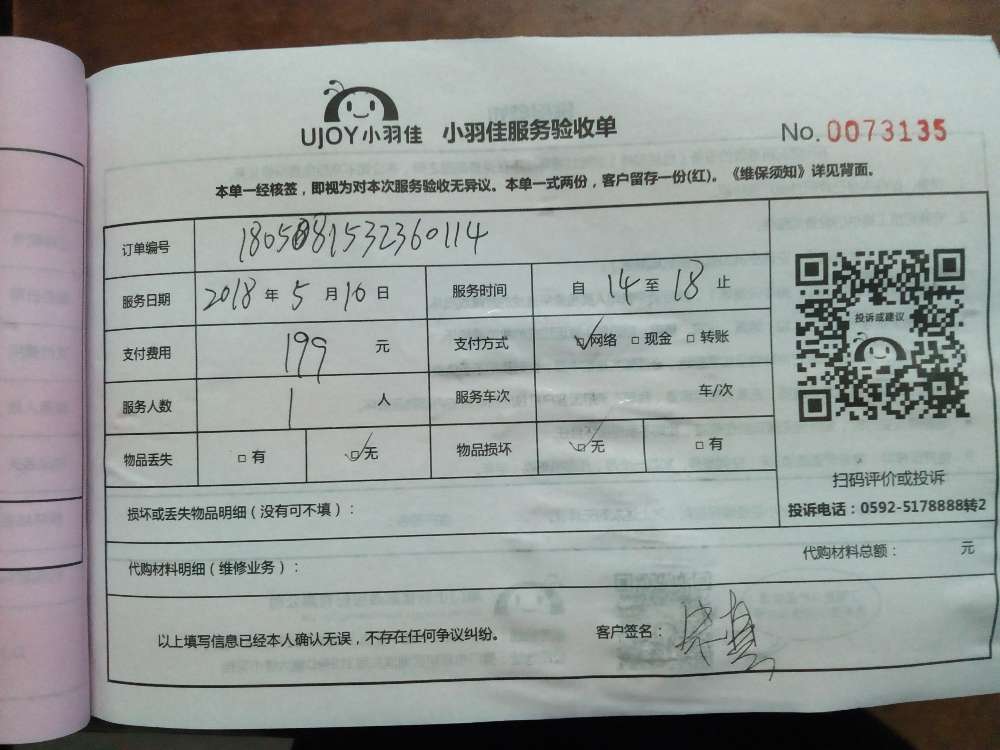 UJOY小羽佳 小羽佳服务验收单 No.0073135
本单一经核签，即视为对本次服务验收无异议。本单一式两份，客户留存一份(红)。《维保须知》详见背面。
订单编号 1805081532360114
服务日期 2018年5月10日 服务时间 自14至18止
支付费用 199元 支付方式 ☑网络 □现金 □转账
服务人数 1人 服务车次 车/次
物品丢失 □有 ☑无 物品损坏 ☑无 □有
投诉或建议
扫码评价或投诉
投诉电话：0592-5178888转2
损坏或丢失物品明细（没有可不填）：
代购材料明细（维修业务）： 代购材料总额： 元
以上填写信息已经本人确认无误，不存在任何争议纠纷。 客户签名：